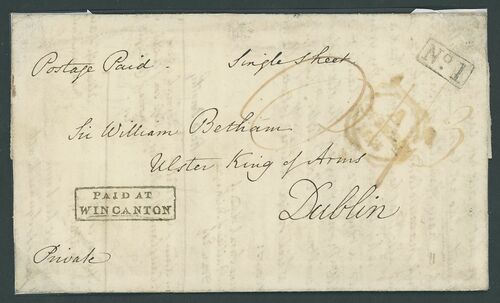 Postage Paid - Single Sheet
No. 1
Sir William Betham
Ulster King of Arms
Dublin
PAID AT
WINCANTON
Private